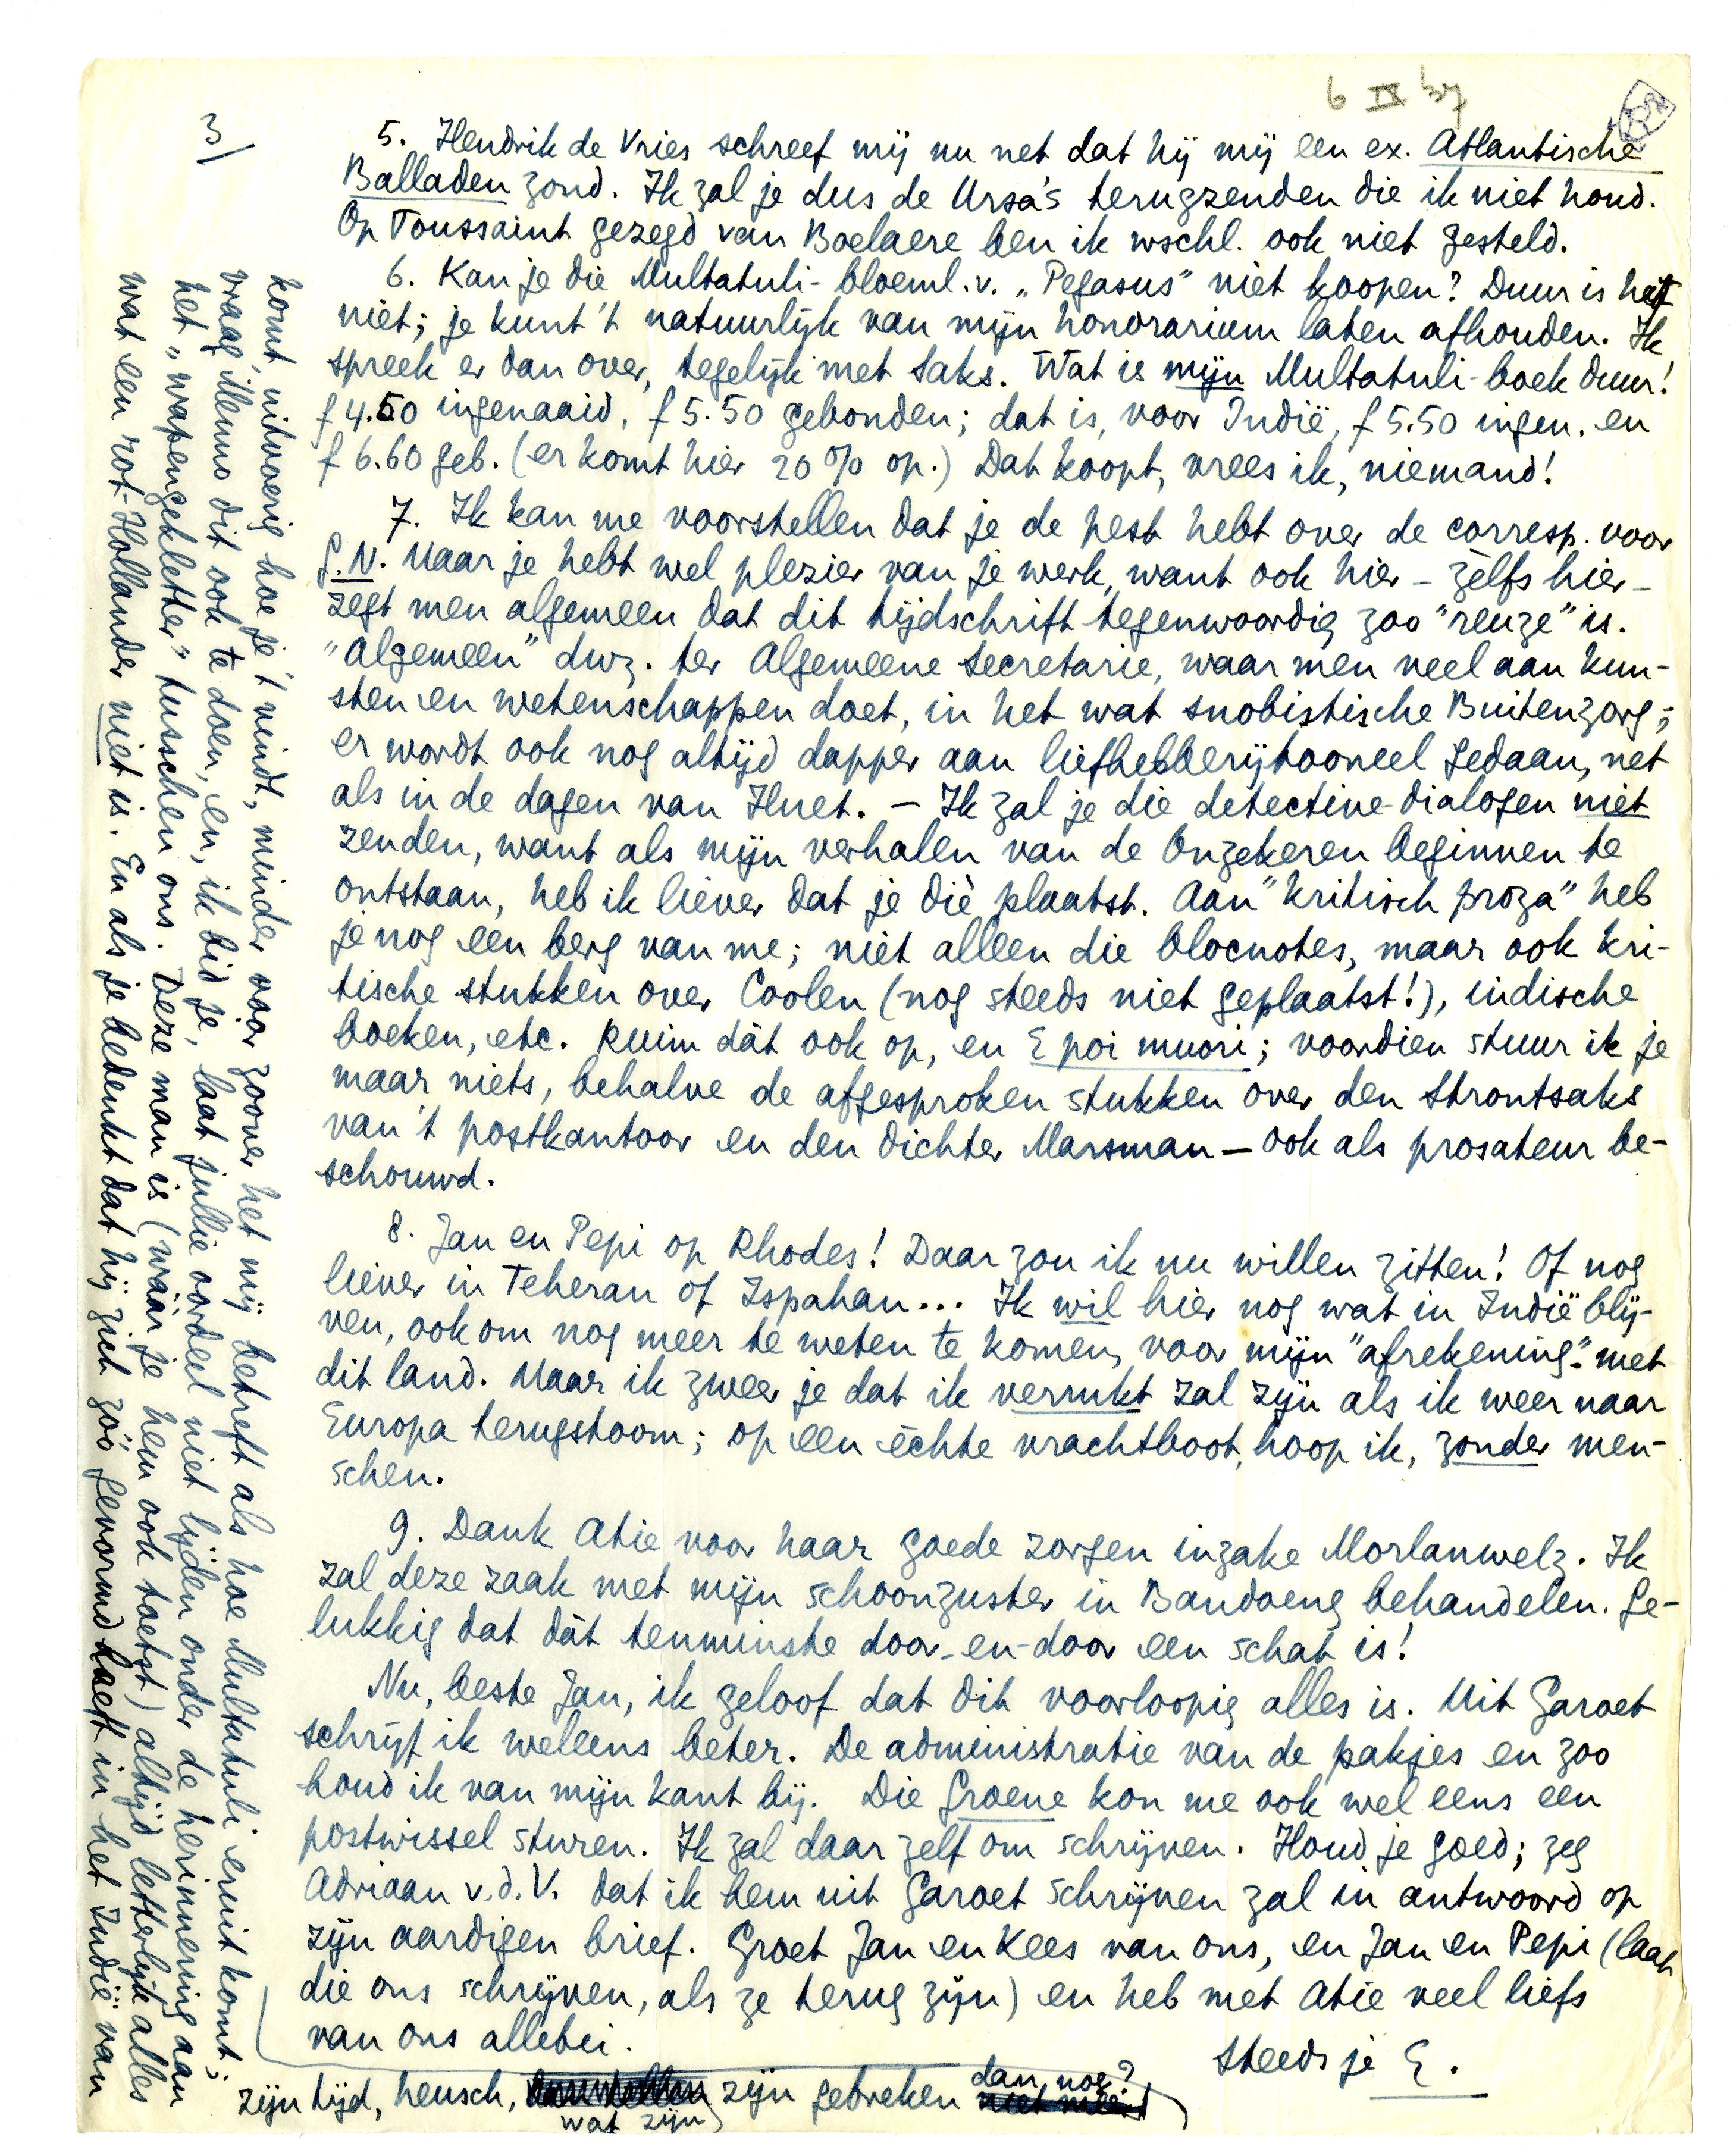 6 IX 37
3/
5. Hendrik de Vries schreef mij nu net dat hij mij een ex. Atlantische
Balladen zond. Ik zal je dus de Ursa's terugzenden die ik niet houd.
Op Toussaint gezegd van Boelaere ben ik wschl. ook niet gesteld.
6. Kan je die Multatuli-bloeml. v. „Pegasus" niet koopen? Duur is het
niet; je kunt 't natuurlijk van mijn honorarium laten afhouden. Ik
spreek er dan over, tegelijk met Saks. Wat is mijn Multatuli-boek duur!
f 4.50 ingenaaid, f 5.50 gebonden; dat is, voor Indië, f 5.50 ingen. en
f 6.60 geb. (er komt hier 20% op.) Dat koopt, vrees ik, niemand!
7. Ik kan me voorstellen dat je de pest hebt over de corresp. voor
G.N. Maar je hebt wel plezier van je werk, want ook hier - zèlfs hier -
zegt men algemeen dat dit tijdschrift tegenwoordig zoo "reuze" is.
"Algemeen" dwz. ter Algemeene Secretarie, waar men veel aan kun-
sten en wetenschappen doet, in het wat snobistische Buitenzorg;
er wordt ook nog altijd dapper aan liefhebberijtooneel gedaan, net
als in de dagen van Huet. – Ik zal je die detective-dialogen niet
zenden, want als mijn verhalen van de Onzekeren beginnen te
ontstaan, heb ik liever dat je dìe plaatst. Aan "kritisch proza" heb
je nog een berg van me; niet alleen die blocnotes, maar ook kri-
tische stukken over Coolen (nog steeds niet geplaatst!), indische
boeken, etc. Ruim dàt ook op, en E poi muori; voordien stuur ik je
maar niets, behalve de afgesproken stukken over den Strontsaks
van 't postkantoor en den dichter Marsman – ook als prosateur be-
schouwd.
8. Jan en Pepi op Rhodes! Daar zou ik nu willen zitten! Of nog
liever in Teheran of Ispahan... Ik wil hier nog wat in Indië blij-
ven, ook om nog meer te weten te komen, voor mijn "afrekening" met
dit land. Maar ik zweer je dat ik verrukt zal zijn als ik weer naar
Europa terugstoom; op een èchte vrachtboot, hoop ik, zonder men-
schen.
9. Dank Atie voor haar goede zorgen inzake Morlanwelz. Ik
zal deze zaak met mijn schoonzuster in Bandoeng behandelen. Ge-
lukkig dat dàt tenminste door-en-door een schat is!
Nu, beste Jan, ik geloof dat dit voorloopig alles is. Uit Garoet
schrijf ik weleens beter. De administratie van de pakjes en zoo
houd ik van mijn kant bij. Die Groene kon me ook wel eens een
postwissel sturen. Ik zal daar zelf om schrijven. Houd je goed; zeg
Adriaan v.d.V. dat ik hem uit Garoet schrijven zal in antwoord op
zijn aardigen brief. Groet Jan en Kees van ons, en Jan en Pepi (laat
die ons schrijven, als ze terug zijn) en heb met Atie veel liefs
van ons allebei.
Steeds je E.
komt, uitvoerig hoe je 't vindt, minder voor zoover het mij betreft als hoe Multatuli eruit komt;
vraag Menno dit ook te doen, en, ik bid je, laat jullie oordeel niet lijden onder de herinnering aan
het „wapengekletter" tusschen ons. Deze man is (wáár je hem ook toetst) altijd letterlijk alles
wat een rot-Hollander niet is. En als je bedenkt dat hij zich zóó gevormd heeft in het Indië van
zijn tijd, heusch, wat zijn zijn gebreken dan nog?